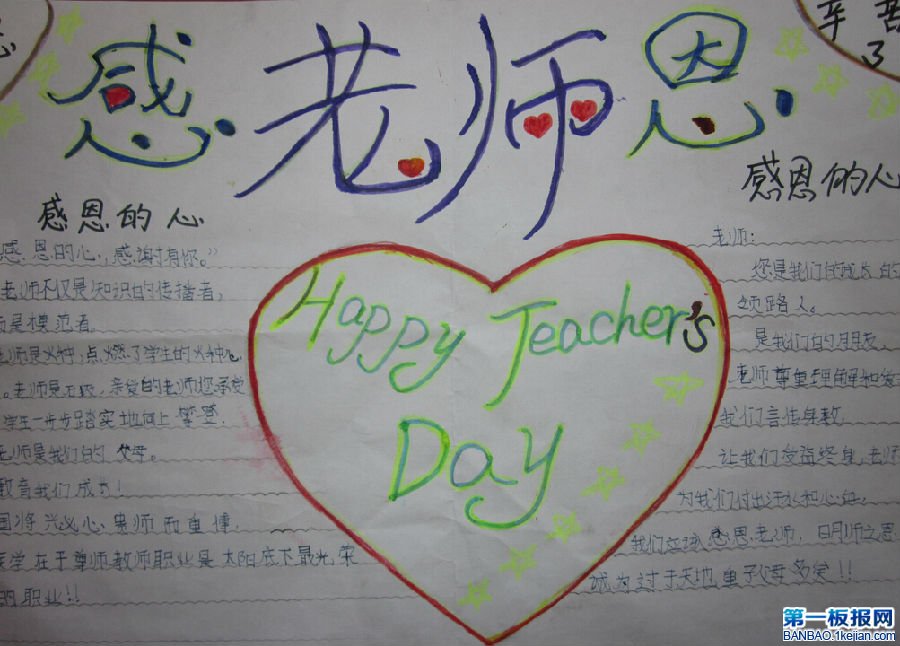 感老师恩
辛苦了
感恩的心
感恩的心
"感恩的心,感谢有你。"
老师不仅是知识的传播者,
是模范者
老师是火种,点燃了学生的火种
。老师是石级,亲爱的老师您承受
学生一步步踏实地向上攀登.
老师是我们的父母。
教育我们成为!
国将兴必心贵师而重傅.
医学在于尊师教师职业是太阳底下最光荣
的职业!!
Happy Teacher's
Day
老师:
您是我们的成长的
领路人。
是我们的朋友.
老师尊重理解和
我们言传身教
让我们受益终身,老师
为我们付出汗水和心血.
我们应该感恩老师,
诚为过于天地,重于父母多矣!!
第一板报网
BANBAO.1kejian.com